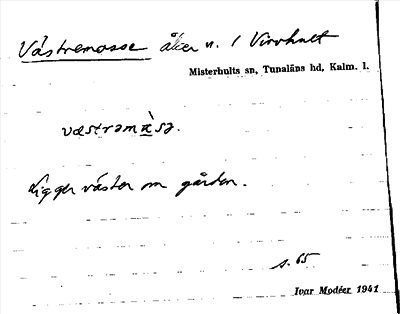 Västremosse åker n. / Virvhult
Misterhults sn, Tunaläns hd, Kalm. l.
Ligger väster om gården.
s. 65
Ivar Modéer 1941